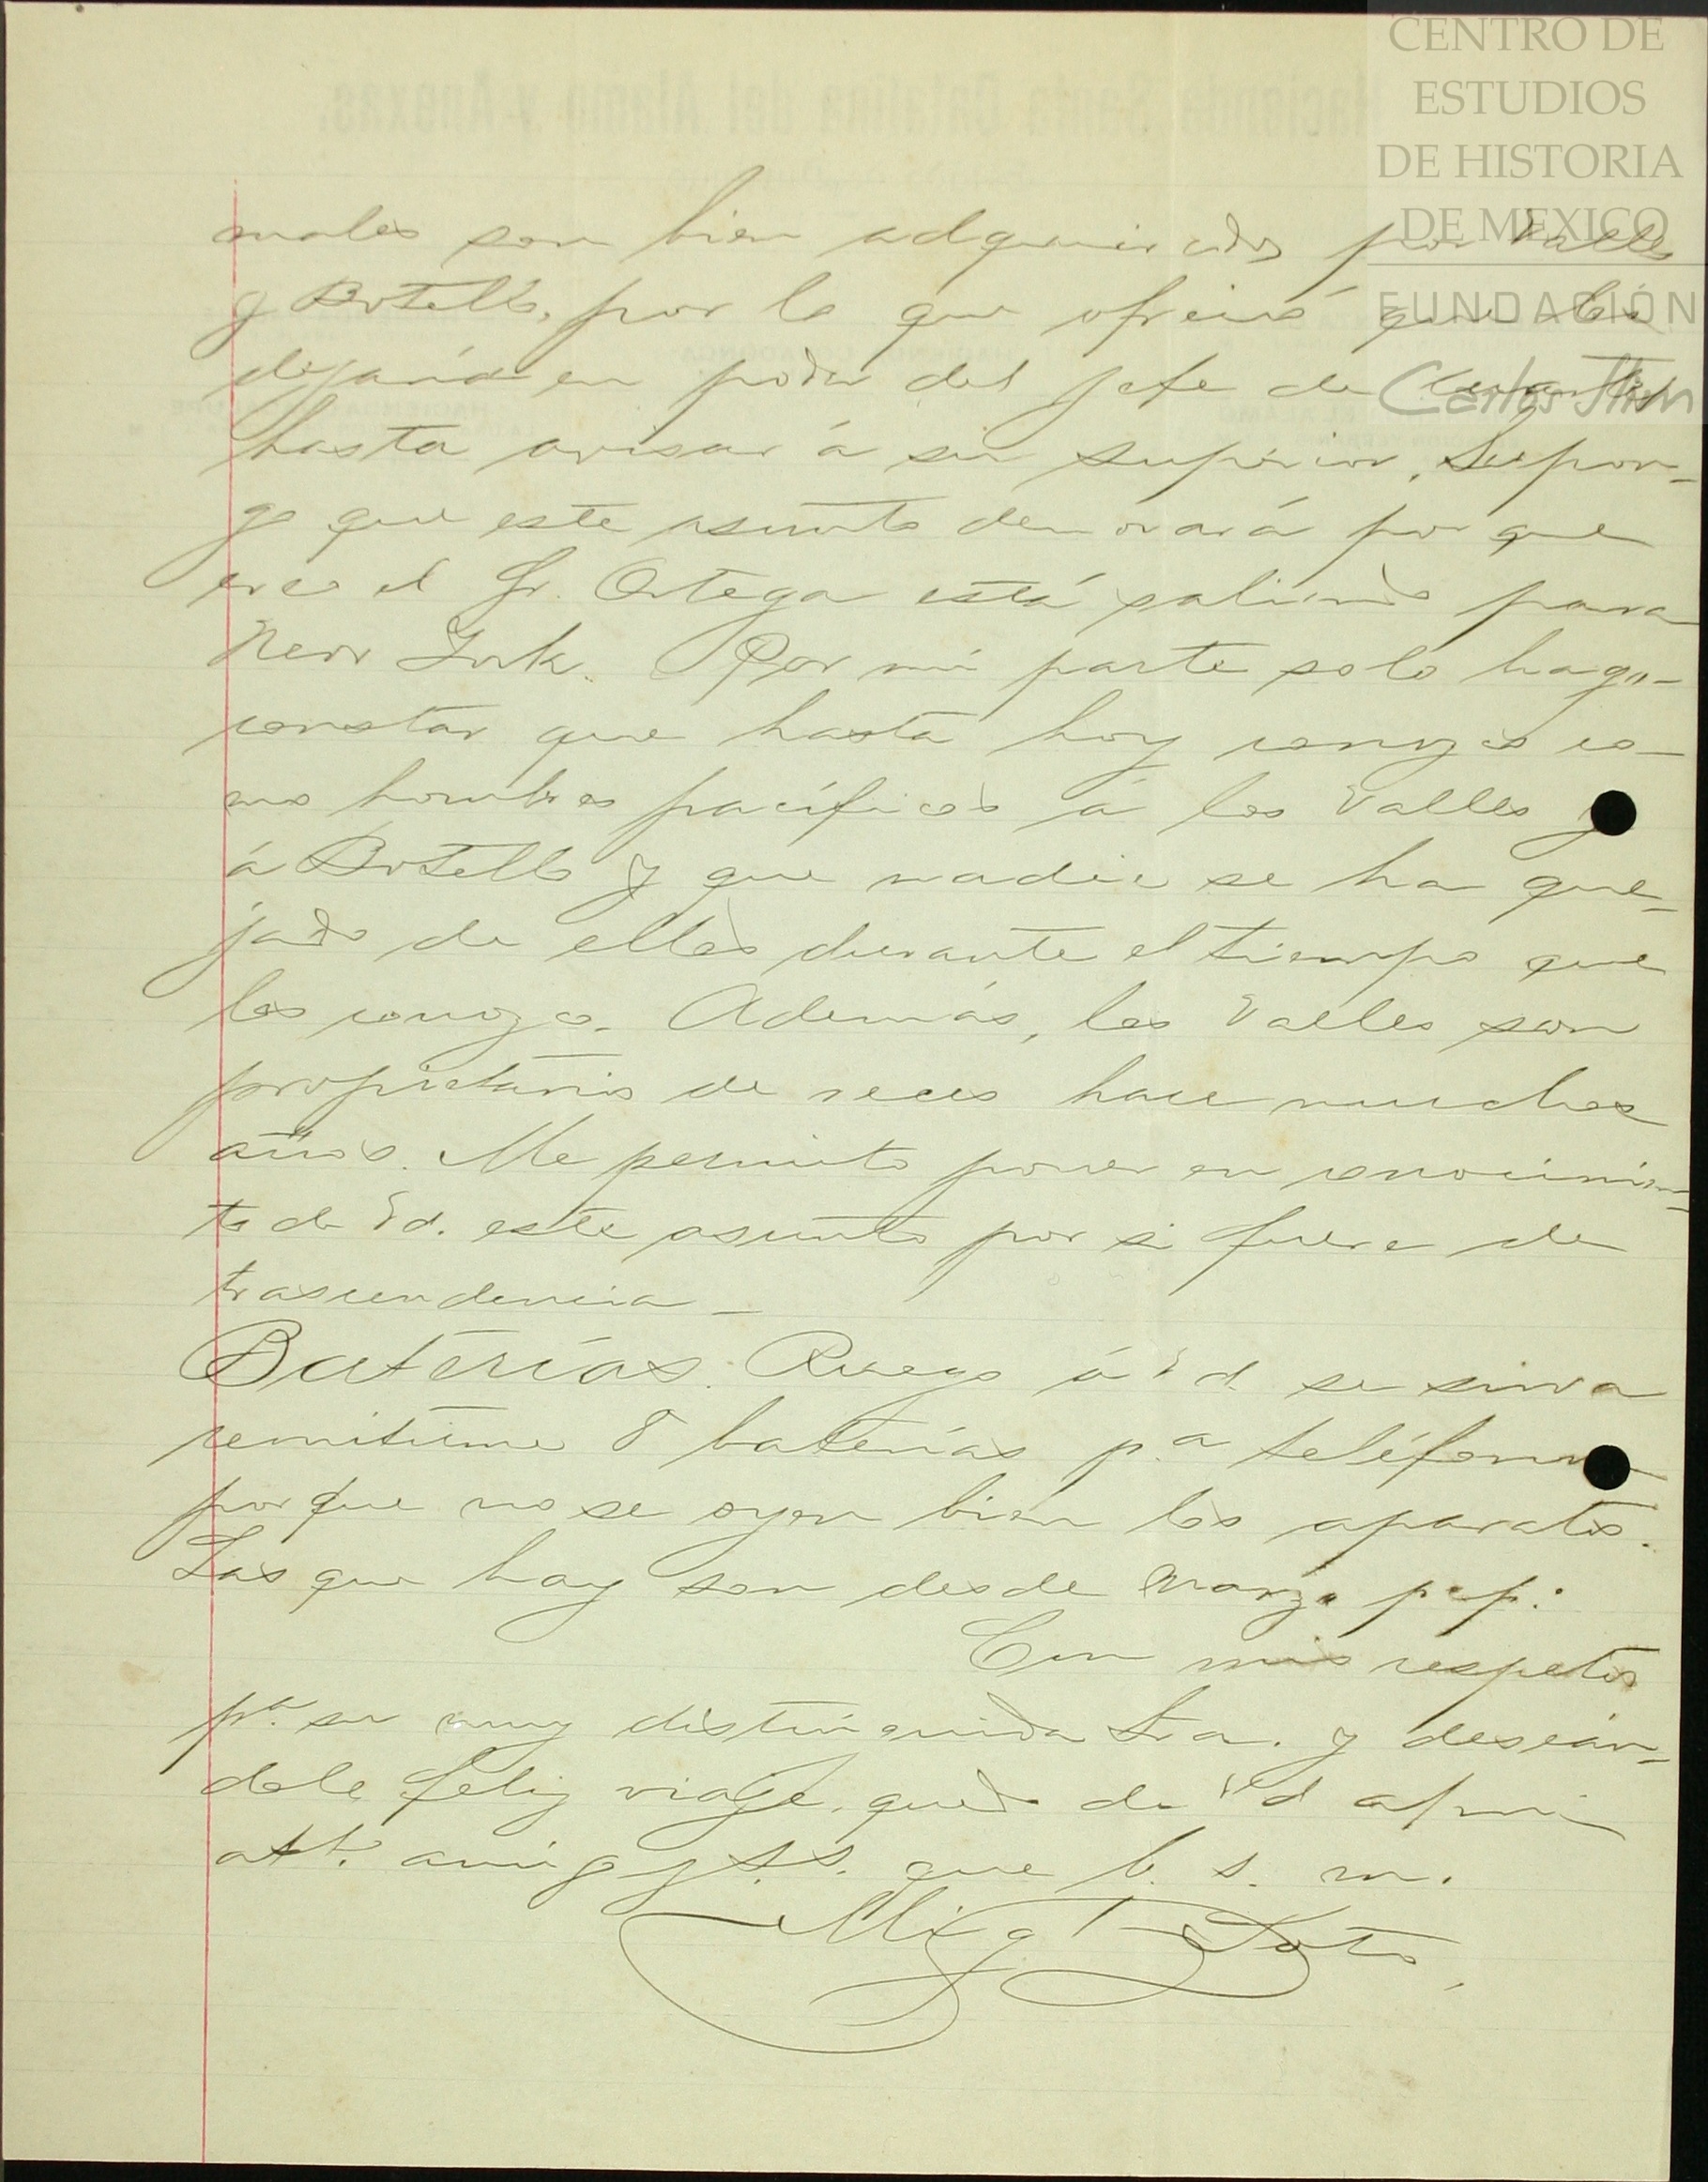 CENTRO DE
ESTUDIOS
DE HISTORIA
DE MEXICO
FUNDACIÓN
Carlos Slim
Hacienda Santa Catalina del Alamo y Anexas.
males son bien adquiridos por Valles
y Botello, por lo que ofreció que los
dejará en poder del jefe de
hasta avisar á su superior. Supon-
go que este asunto demorará por que
creo el Sr. Ortega está saliendo para
New York. Por mi parte solo hago
constar que hasta hoy conozco co-
mo hombres pacíficos á los Valles y
á Botello y que nadie se ha que-
jado de ellos durante el tiempo que
los conozco. Además, los Valles son
propietarios de reces hace muchos
años. Me permito poner en conocimien-
to de Vd. este asunto por si fuere de
trascendencia_
Baterías. Ruego á Vd. se sirva
remitirme 8 baterías p.a teléfono
porque no se oyen bien los aparatos.
Las que hay son desde Marzo p. p.
Con mis respetos
p.a su muy distinguida Sra. y deseán-
dole feliz viage, quedo de Vd afmo
att.o amigo y S.S. que b. s. m.
Mig Soto